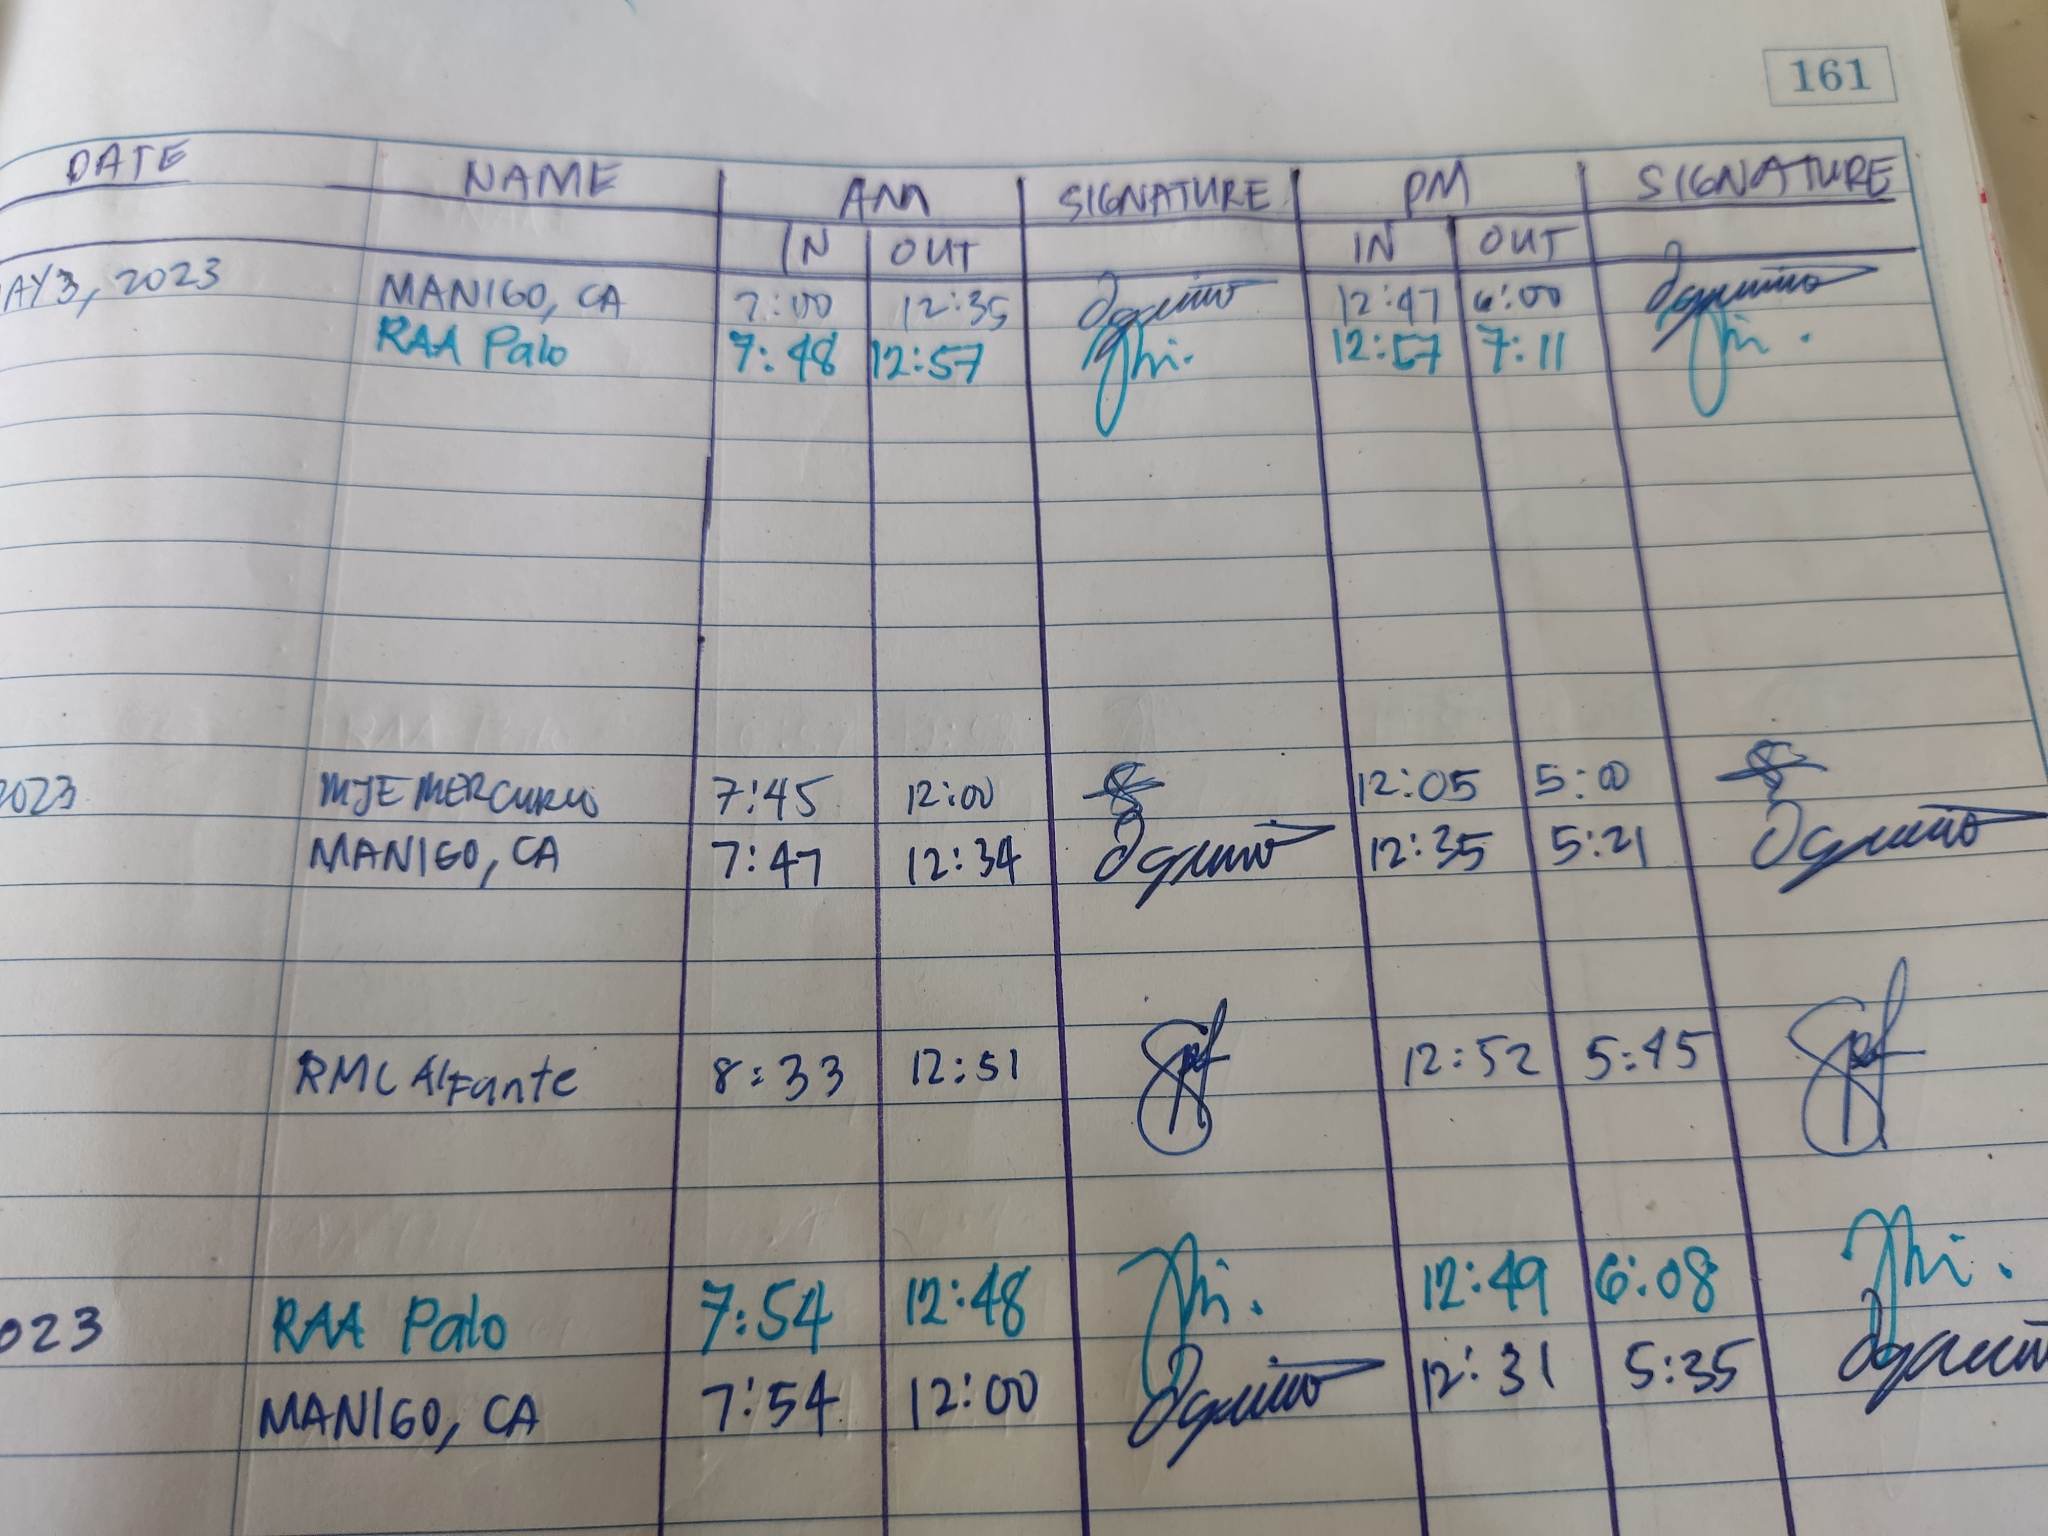 161
DATE NAME AM SIGNATURE PM SIGNATURE
IN OUT IN OUT
AY 3, 2023 MANIGO, CA 7:00 12:35 12:47 6:00
RAA Palo 7:48 12:57 12:57 7:11
2023 MJE MERCURIO 7:45 12:00 12:05 5:00
MANIGO, CA 7:47 12:34 12:35 5:21
RMC Alfante 8:33 12:51 12:52 5:45
023 RAA Palo 7:54 12:48 12:49 6:08
MANIGO, CA 7:54 12:00 12:31 5:35